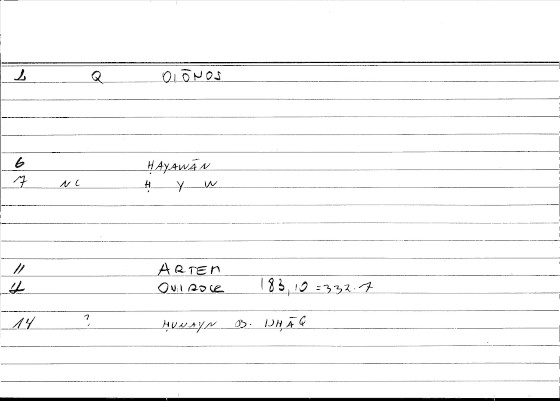 1 Q OIŌNOS
6 ḤAYAWĀN
7 NC Ḥ Y W
11 ARTEM
OVIROCR 183,10 = 332.7
14 ? ḤUNAYN B. ISḤĀQ